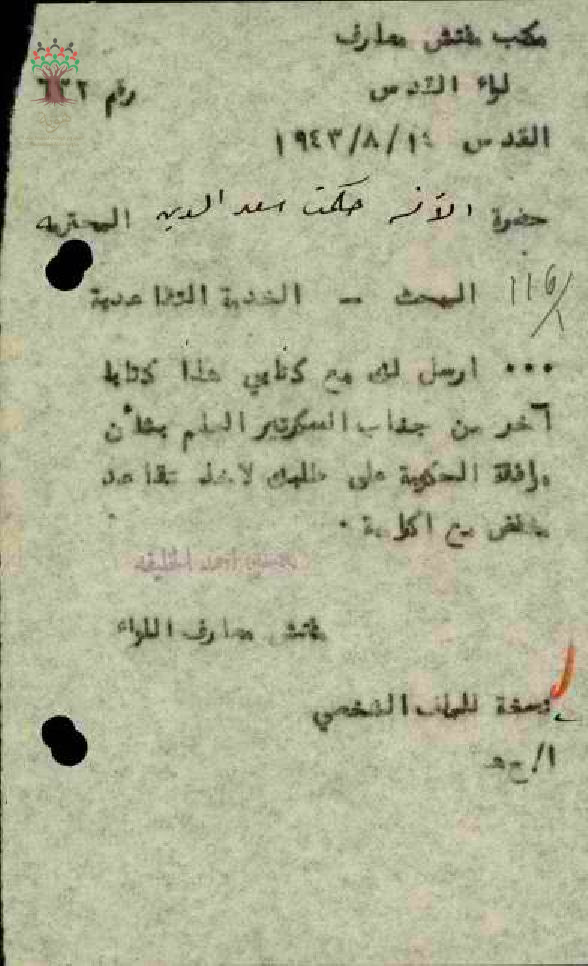 مكتب مفتش معارف
لواء القدس
رقم ٦٣٢
القدس ١٩٤٣/٨/١٤
حضرة الآنسه حكمت سعد الدين المحترمه
١١٦/١
البحث - الخدمة التقاعدية
... ارسل لك مع كتابي هذا كتابا
آخر من جناب السكرتير العام بشأن
موافقة الحكومة على طلبك لاخذ تقاعد
مخفض مع اكرامية .
حسني احمد الخليفه
مفتش معارف اللواء
نسخة للملف الشخصي